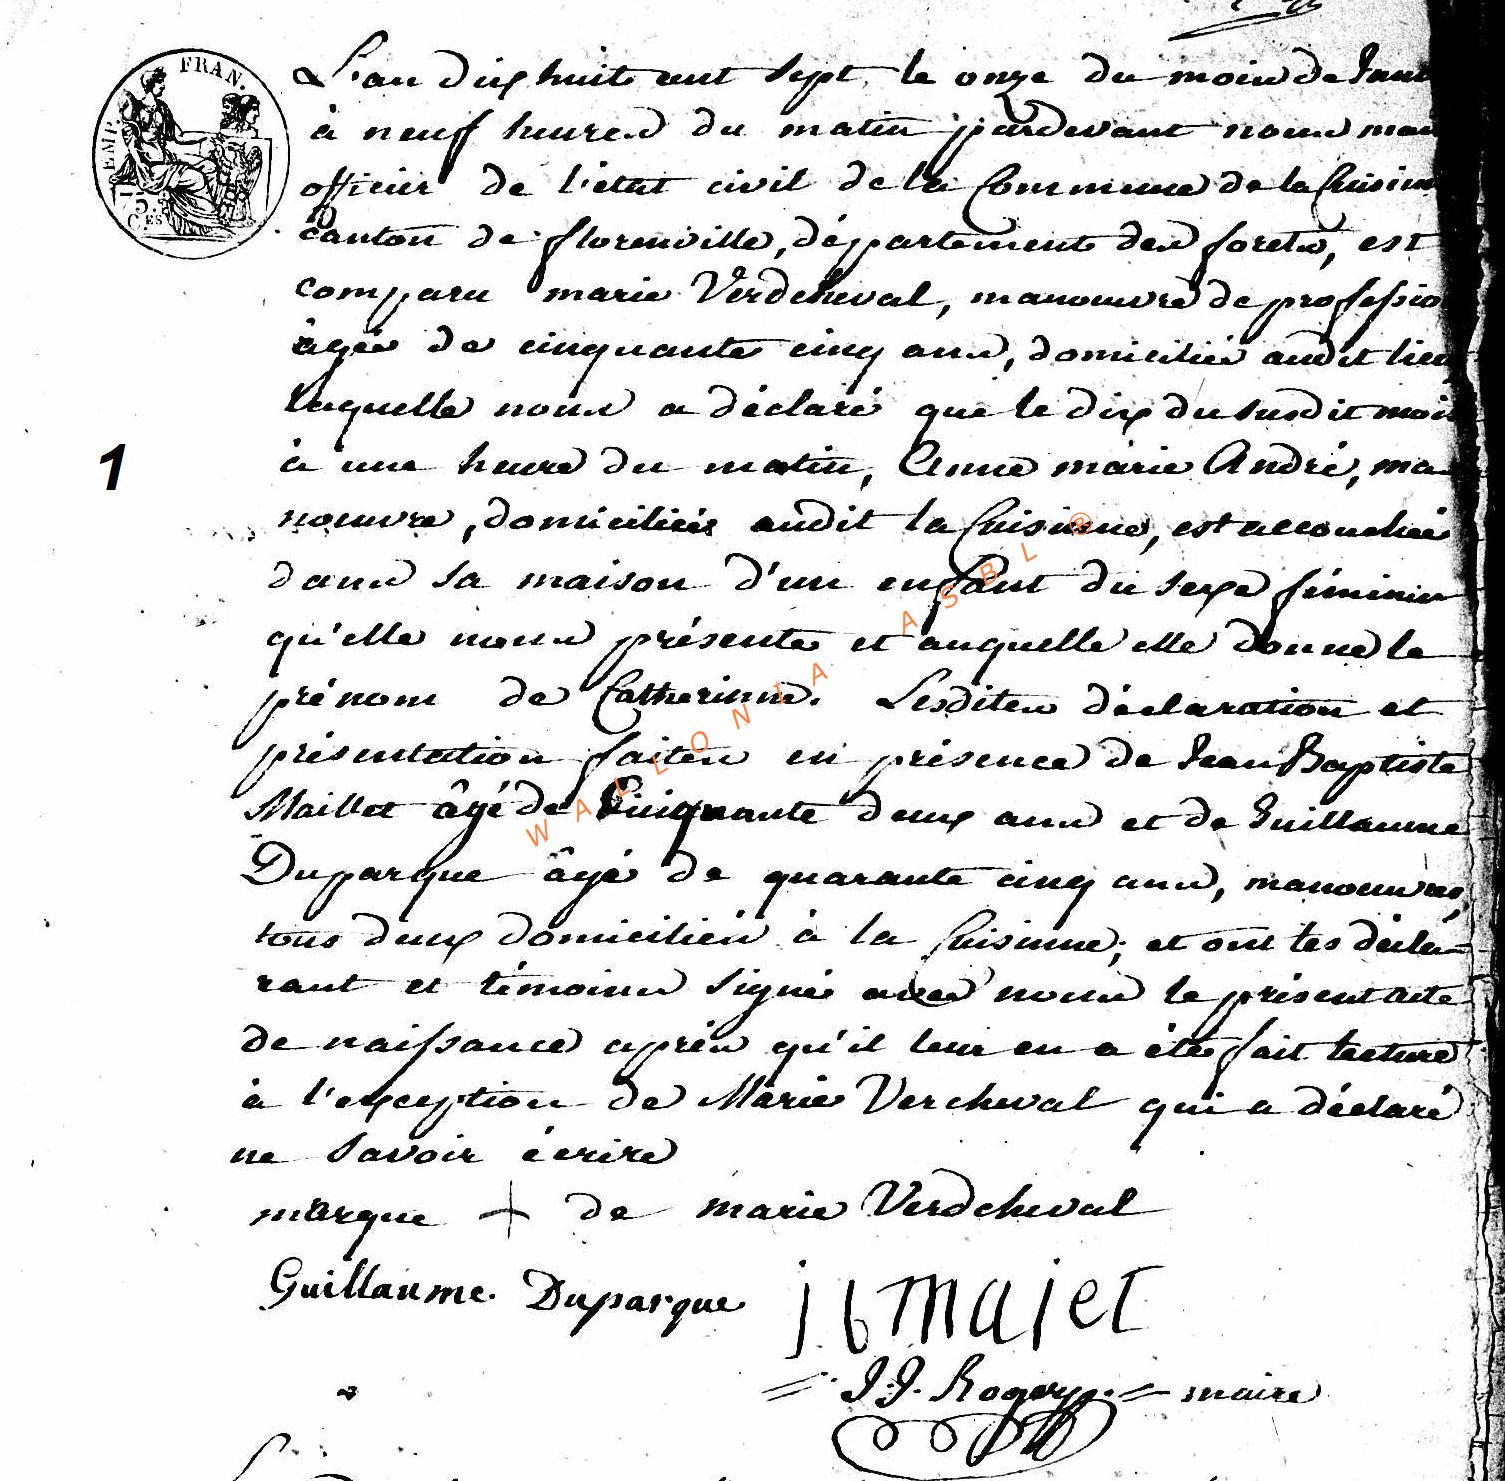 FRAN.
EMP.
75
C.ES
L'an dix huit cent sept, le onze du mois de
à neuf heures du matin pardevant nous
officier de l'état civil de la Commune de la Cuisinne
Canton de florenville, département des forets, est
comparu marie Verdcheval, manouvre de professio
âgée de cinquante cinq ans, domiciliée audit lieu
laquelle nous a déclaré que le dix du susdit mois
à une heure du matin, Anne marie André, ma
nouvre, domiciliée audit la Cuisinne, est accouchée
dans sa maison d'un enfant du sexe féminin
qu'elle nous présente et auquelle elle donne le
prénom de Catherinne. Lesdites déclaration et
présentation faites en présence de Jean Baptiste
Maillet âgé de Cinquante deux ans et de Guillaume
Duparque âgé de quarante cinq ans, manouvres,
tous deux domiciliés à la Cuisinne; et ont les décla-
rant et témoins signé avec nous le présent acte
de naissance après qu'il leur en a été fait lecture
à l'exception de Marie Vercheval qui a déclaré
ne savoir écrire
marque + de marie Verdcheval
Guillaume Duparque jb majet
= J. J. Rogery = maire
1
WALLONIA ASBL ®